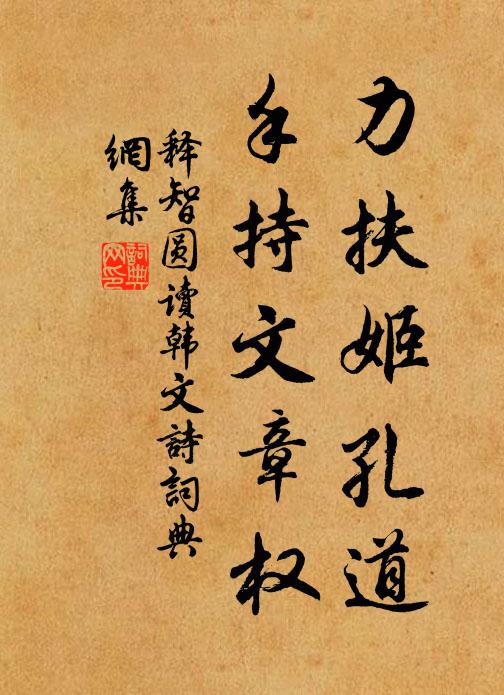 力扶姬孔道
手持文章权
释智圆读韩文詩詞典
網集
詞典
网印